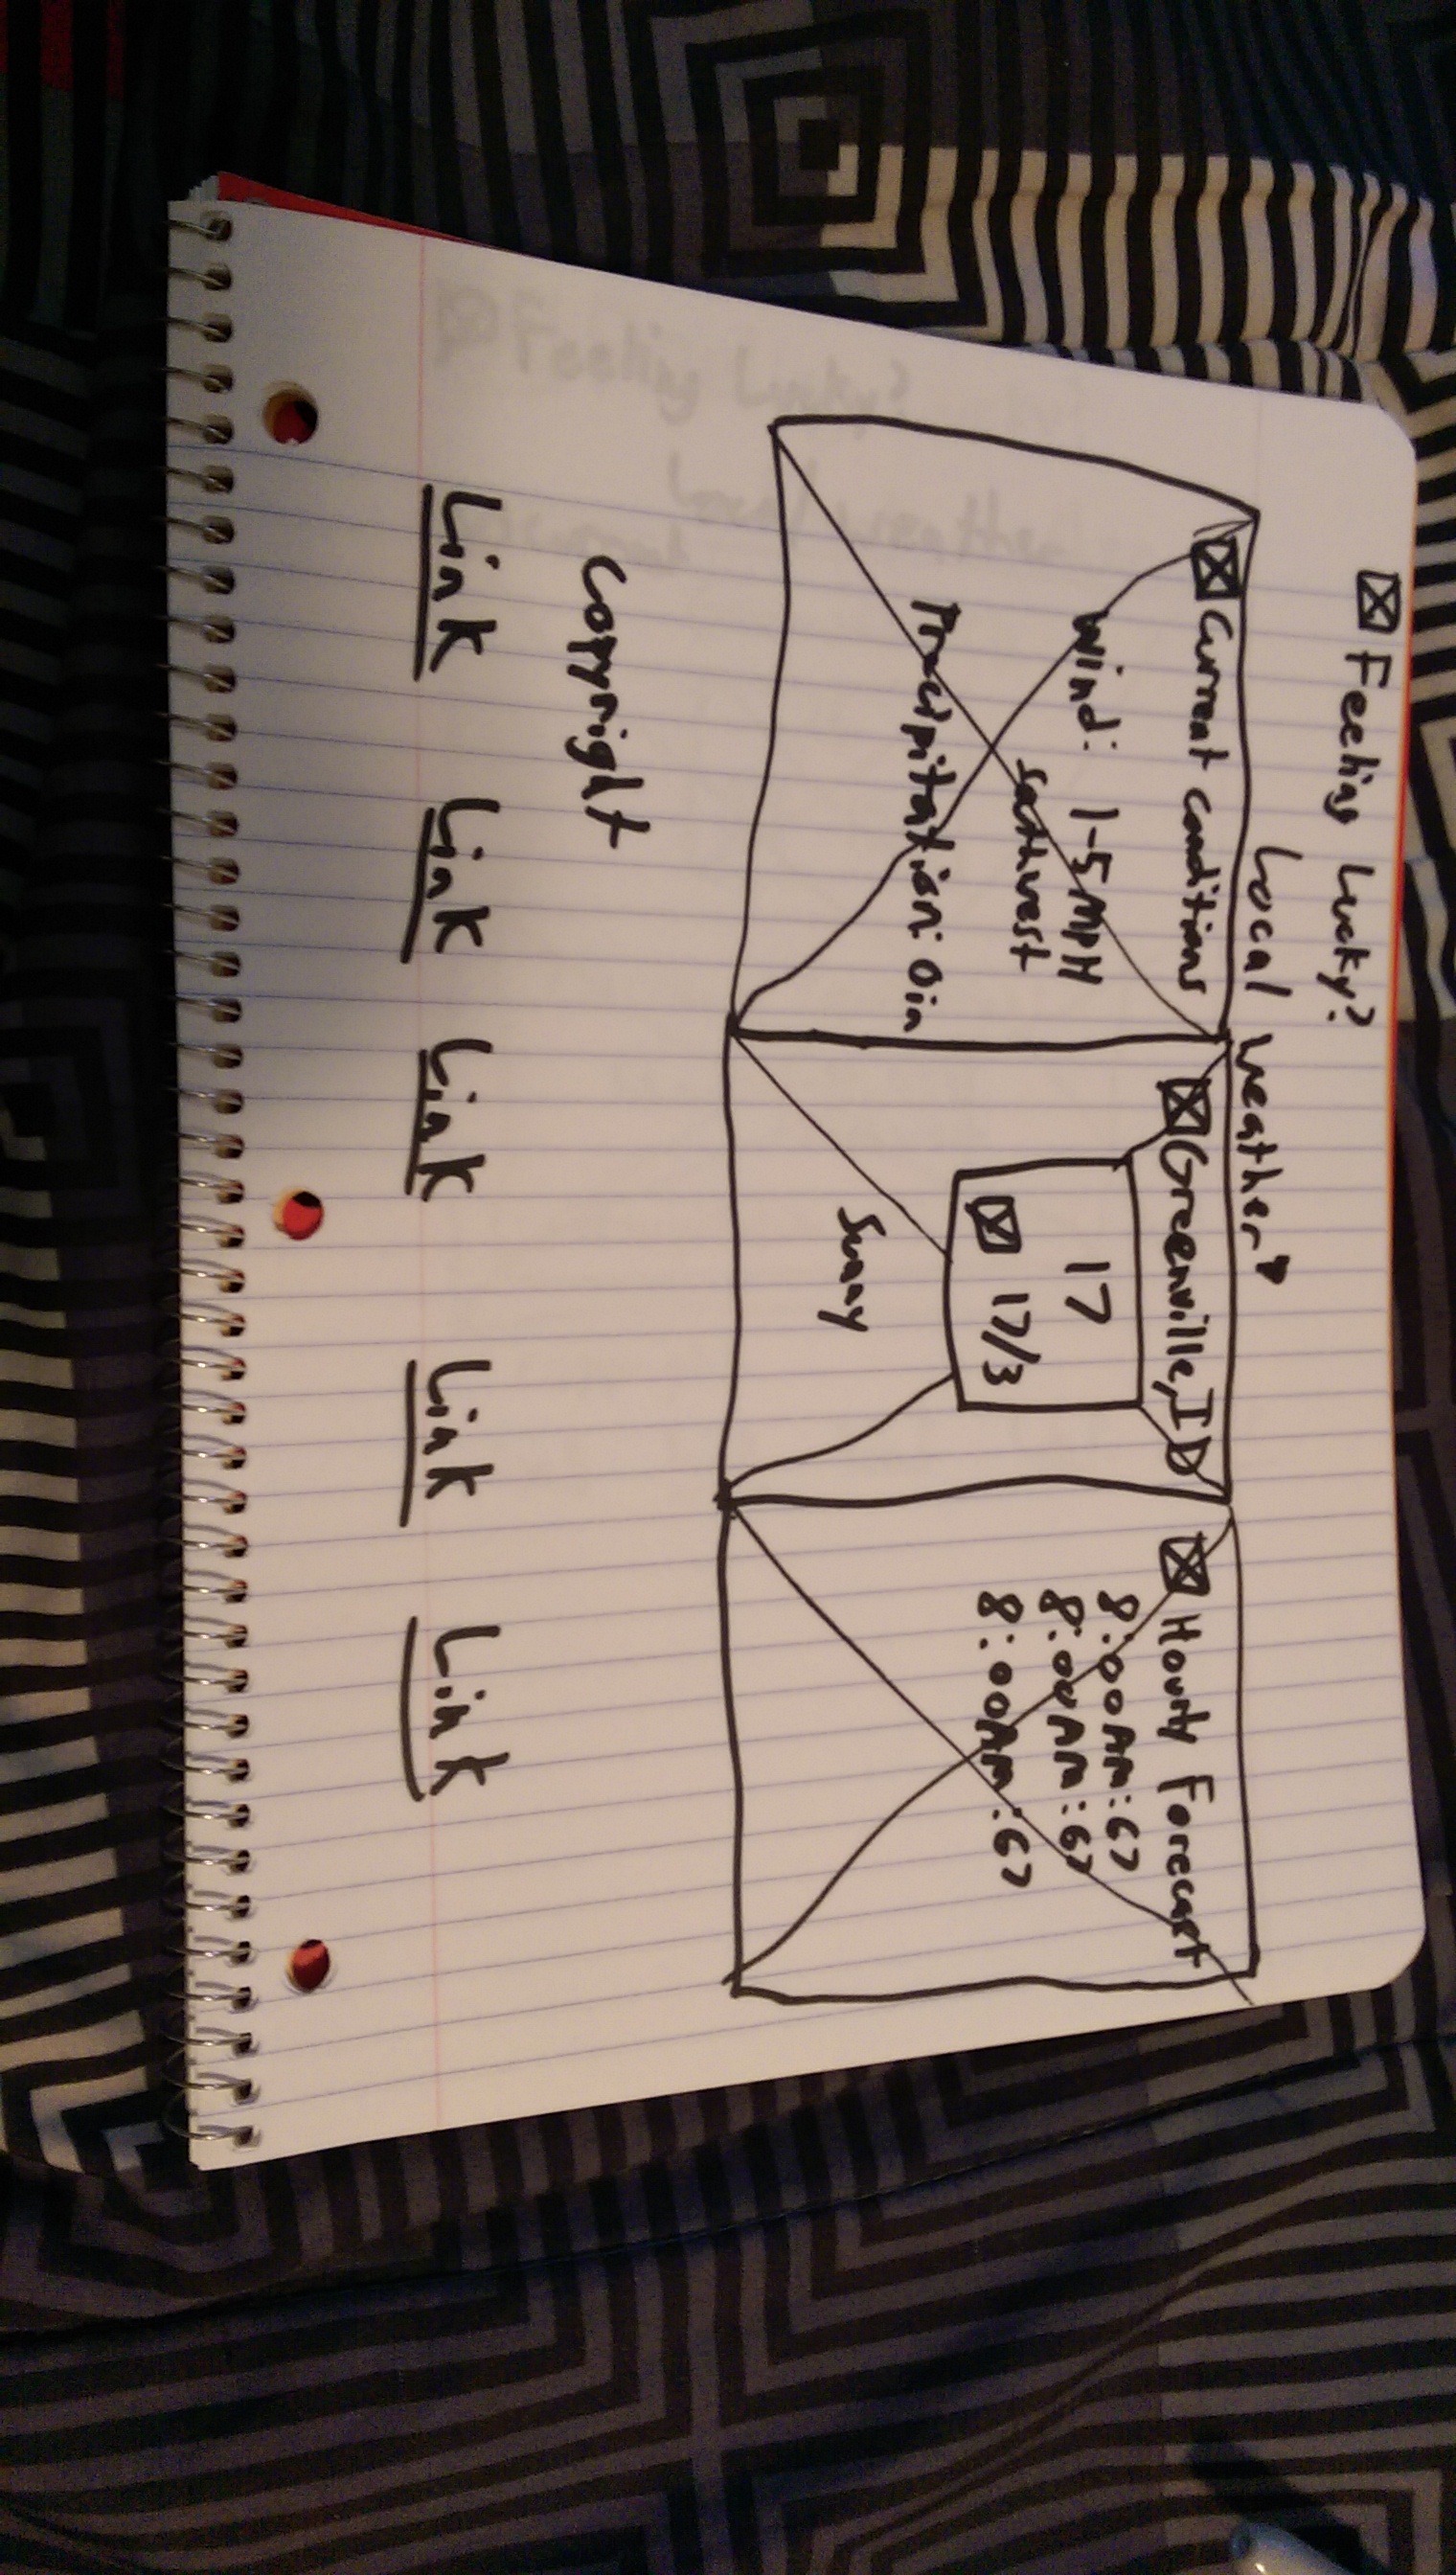 Feeling Lucky?
Local weather
Current conditions
wind: 1-5 MPH
southwest
Precipitation: 0in
Greenville, ID
17
17/3
Sunny
Hourly Forecast
8:00AM:67
8:00AM:67
8:00AM:67
Copyright
Link Link Link Link Link